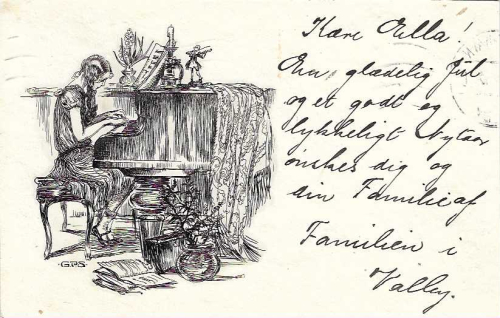 Kære Ella!
En glædelig Jul
og et godt og
lykkeligt Nytaar
ønskes dig og
din Familie af
Familien i
Valby.
G.P.S